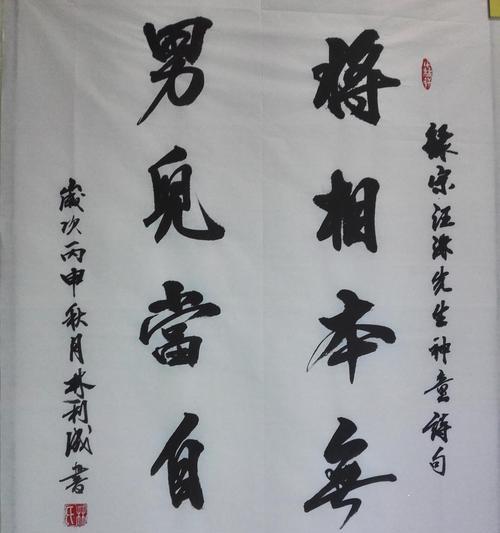 録宋汪洙先生神童詩句
将相本無
男兒當自
歲次丙申秋月林利誠書
林氏